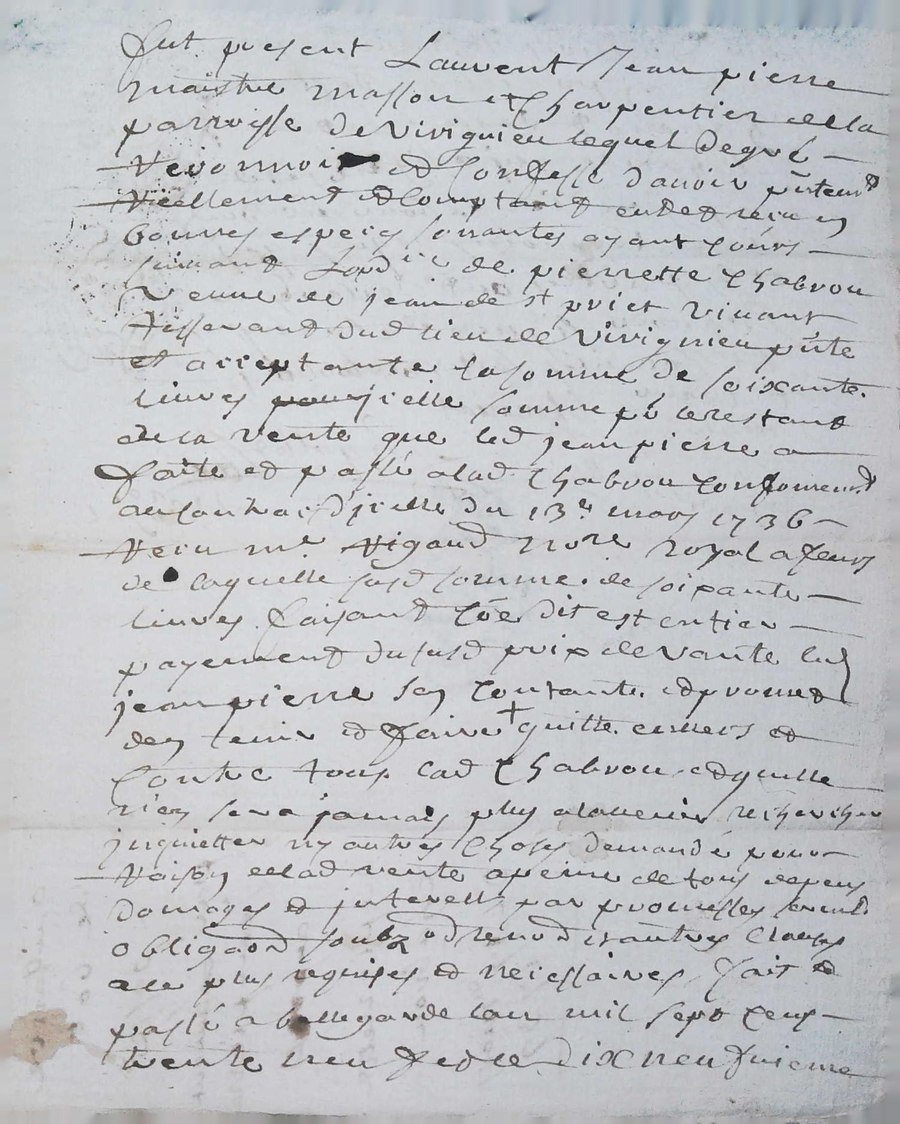 fut present Laurent Jean pierre
maistre masson et Charpentier de la
parroisse de Virignieu lequel de gré
reconnoit et Confesse d'auoir pñtemt
reellement et Comptant eu et recu en
bonnes especes sonnantes ayant Cours
suiuant Lordce de pierrette Chabrou
veuue de jean de st priet viuant
tisserand dud lieu de Virignieu pñte
et acceptante la somme de soixante
liures pour jcelle somme pñ le restant
de la vente que led jean pierre a
faite et passé a lad Chabrou Conformemt
au Contrac d'jcelle du 13e mars 1736
recu me Rigaud nore royal a feurs
de laquelle susd somme de soixante
liures faisant Cõe dit est entier
payement du susd prix de vante led
jean pierre sen Contante et promet
den tenir et faire + quitte enuers et
Contre tous lad Chabrou et quelle
nien sera jamais plus a lauenir rechercher
jnquietter ny autres Choses demandé pour
raison de lad vente a peine de tous depens
domages et jnterest par promesses sermt
obligaon soubz et renon et autres Clauses
a ce plus requises et necessaires, fait et
passé a bellegarde lan mil sept Cens
trente neuf et le dix neufuieme